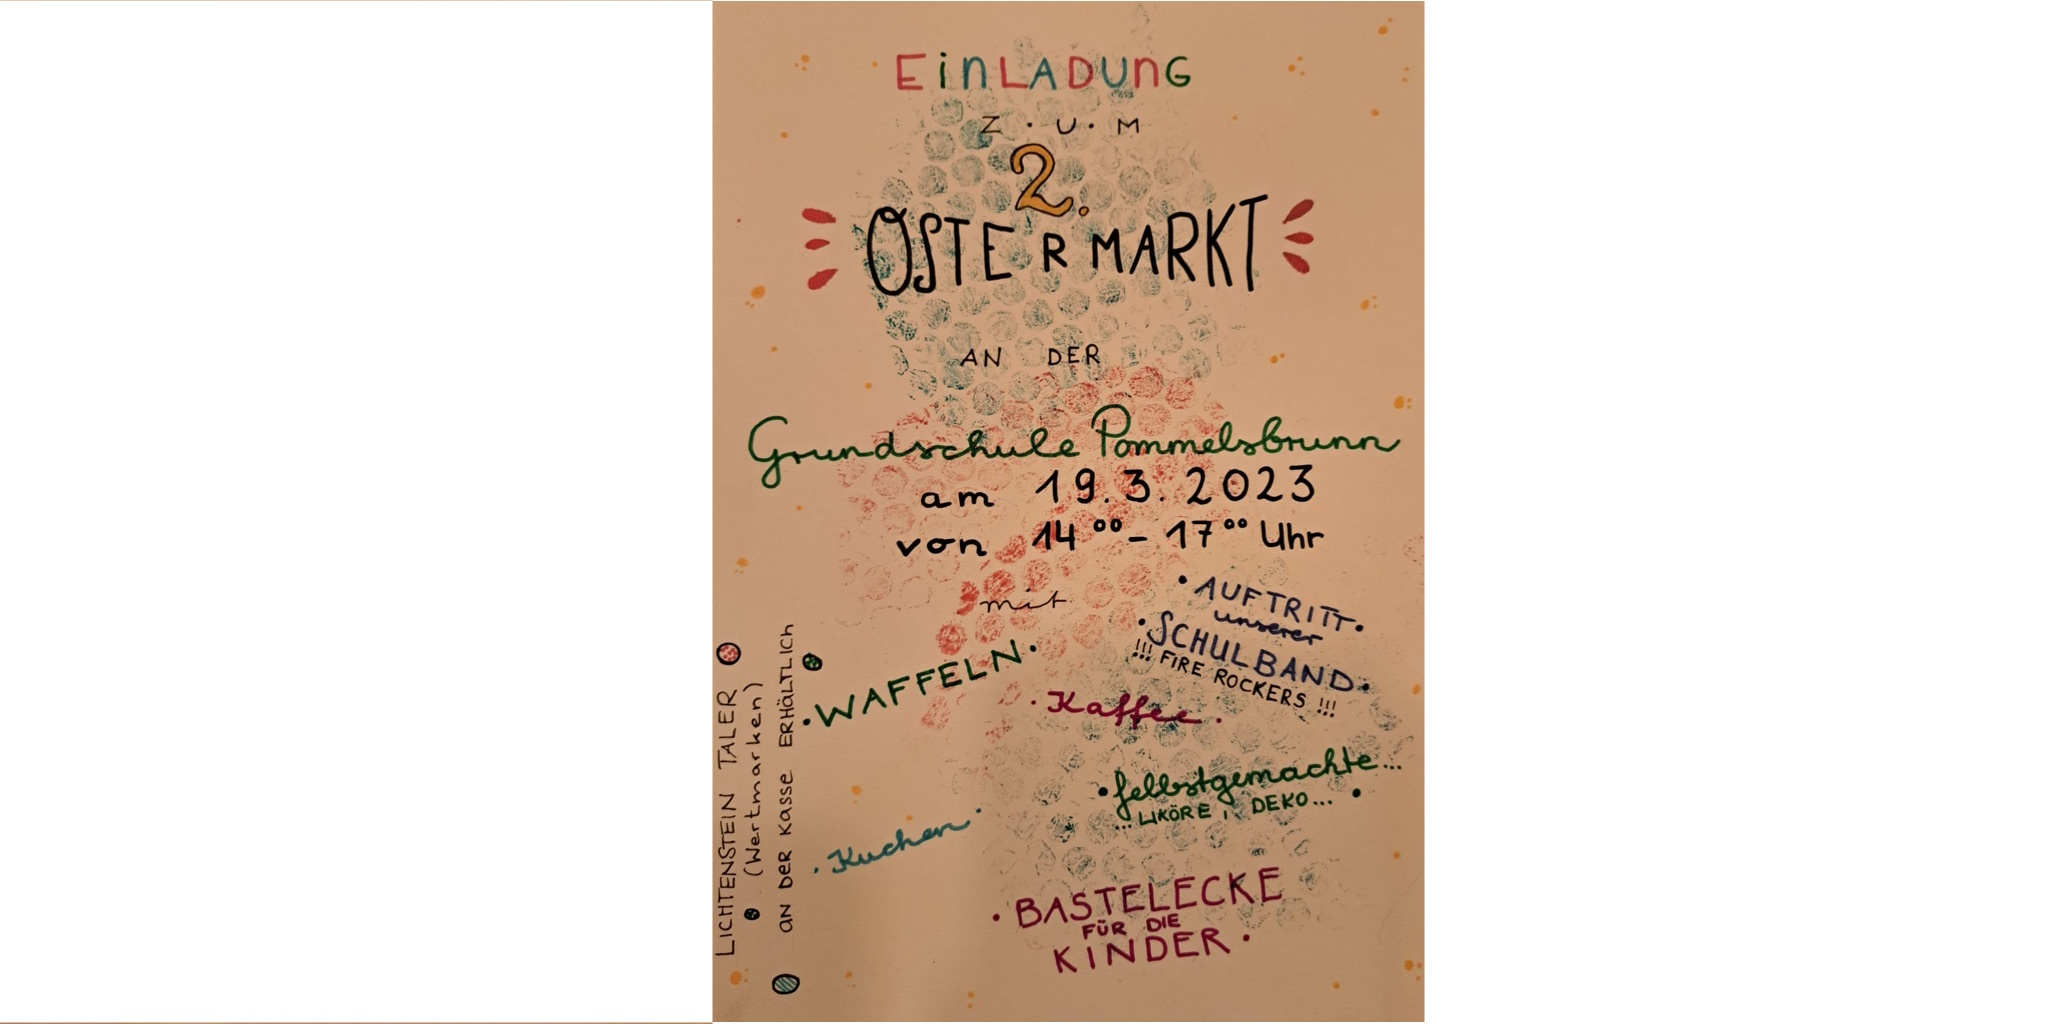 EinLADUnG
Z·U·M
2.
OSTERMARKT
AN DER
Grundschule Pommelsbrunn
am 19.3.2023
von 14⁰⁰ - 17⁰⁰ Uhr
mit
• AUFTRITT •
unserer
• SCHULBAND •
!!! FIRE ROCKERS !!!
• WAFFELN •
• Kaffee •
• Selbstgemachte... •
...LIKÖRE, DEKO...
• Kuchen •
• BASTELECKE
FÜR DIE
KINDER •
LICHTENSTEIN TALER
(Wertmarken)
AN DER KASSE ERHÄLTLICH